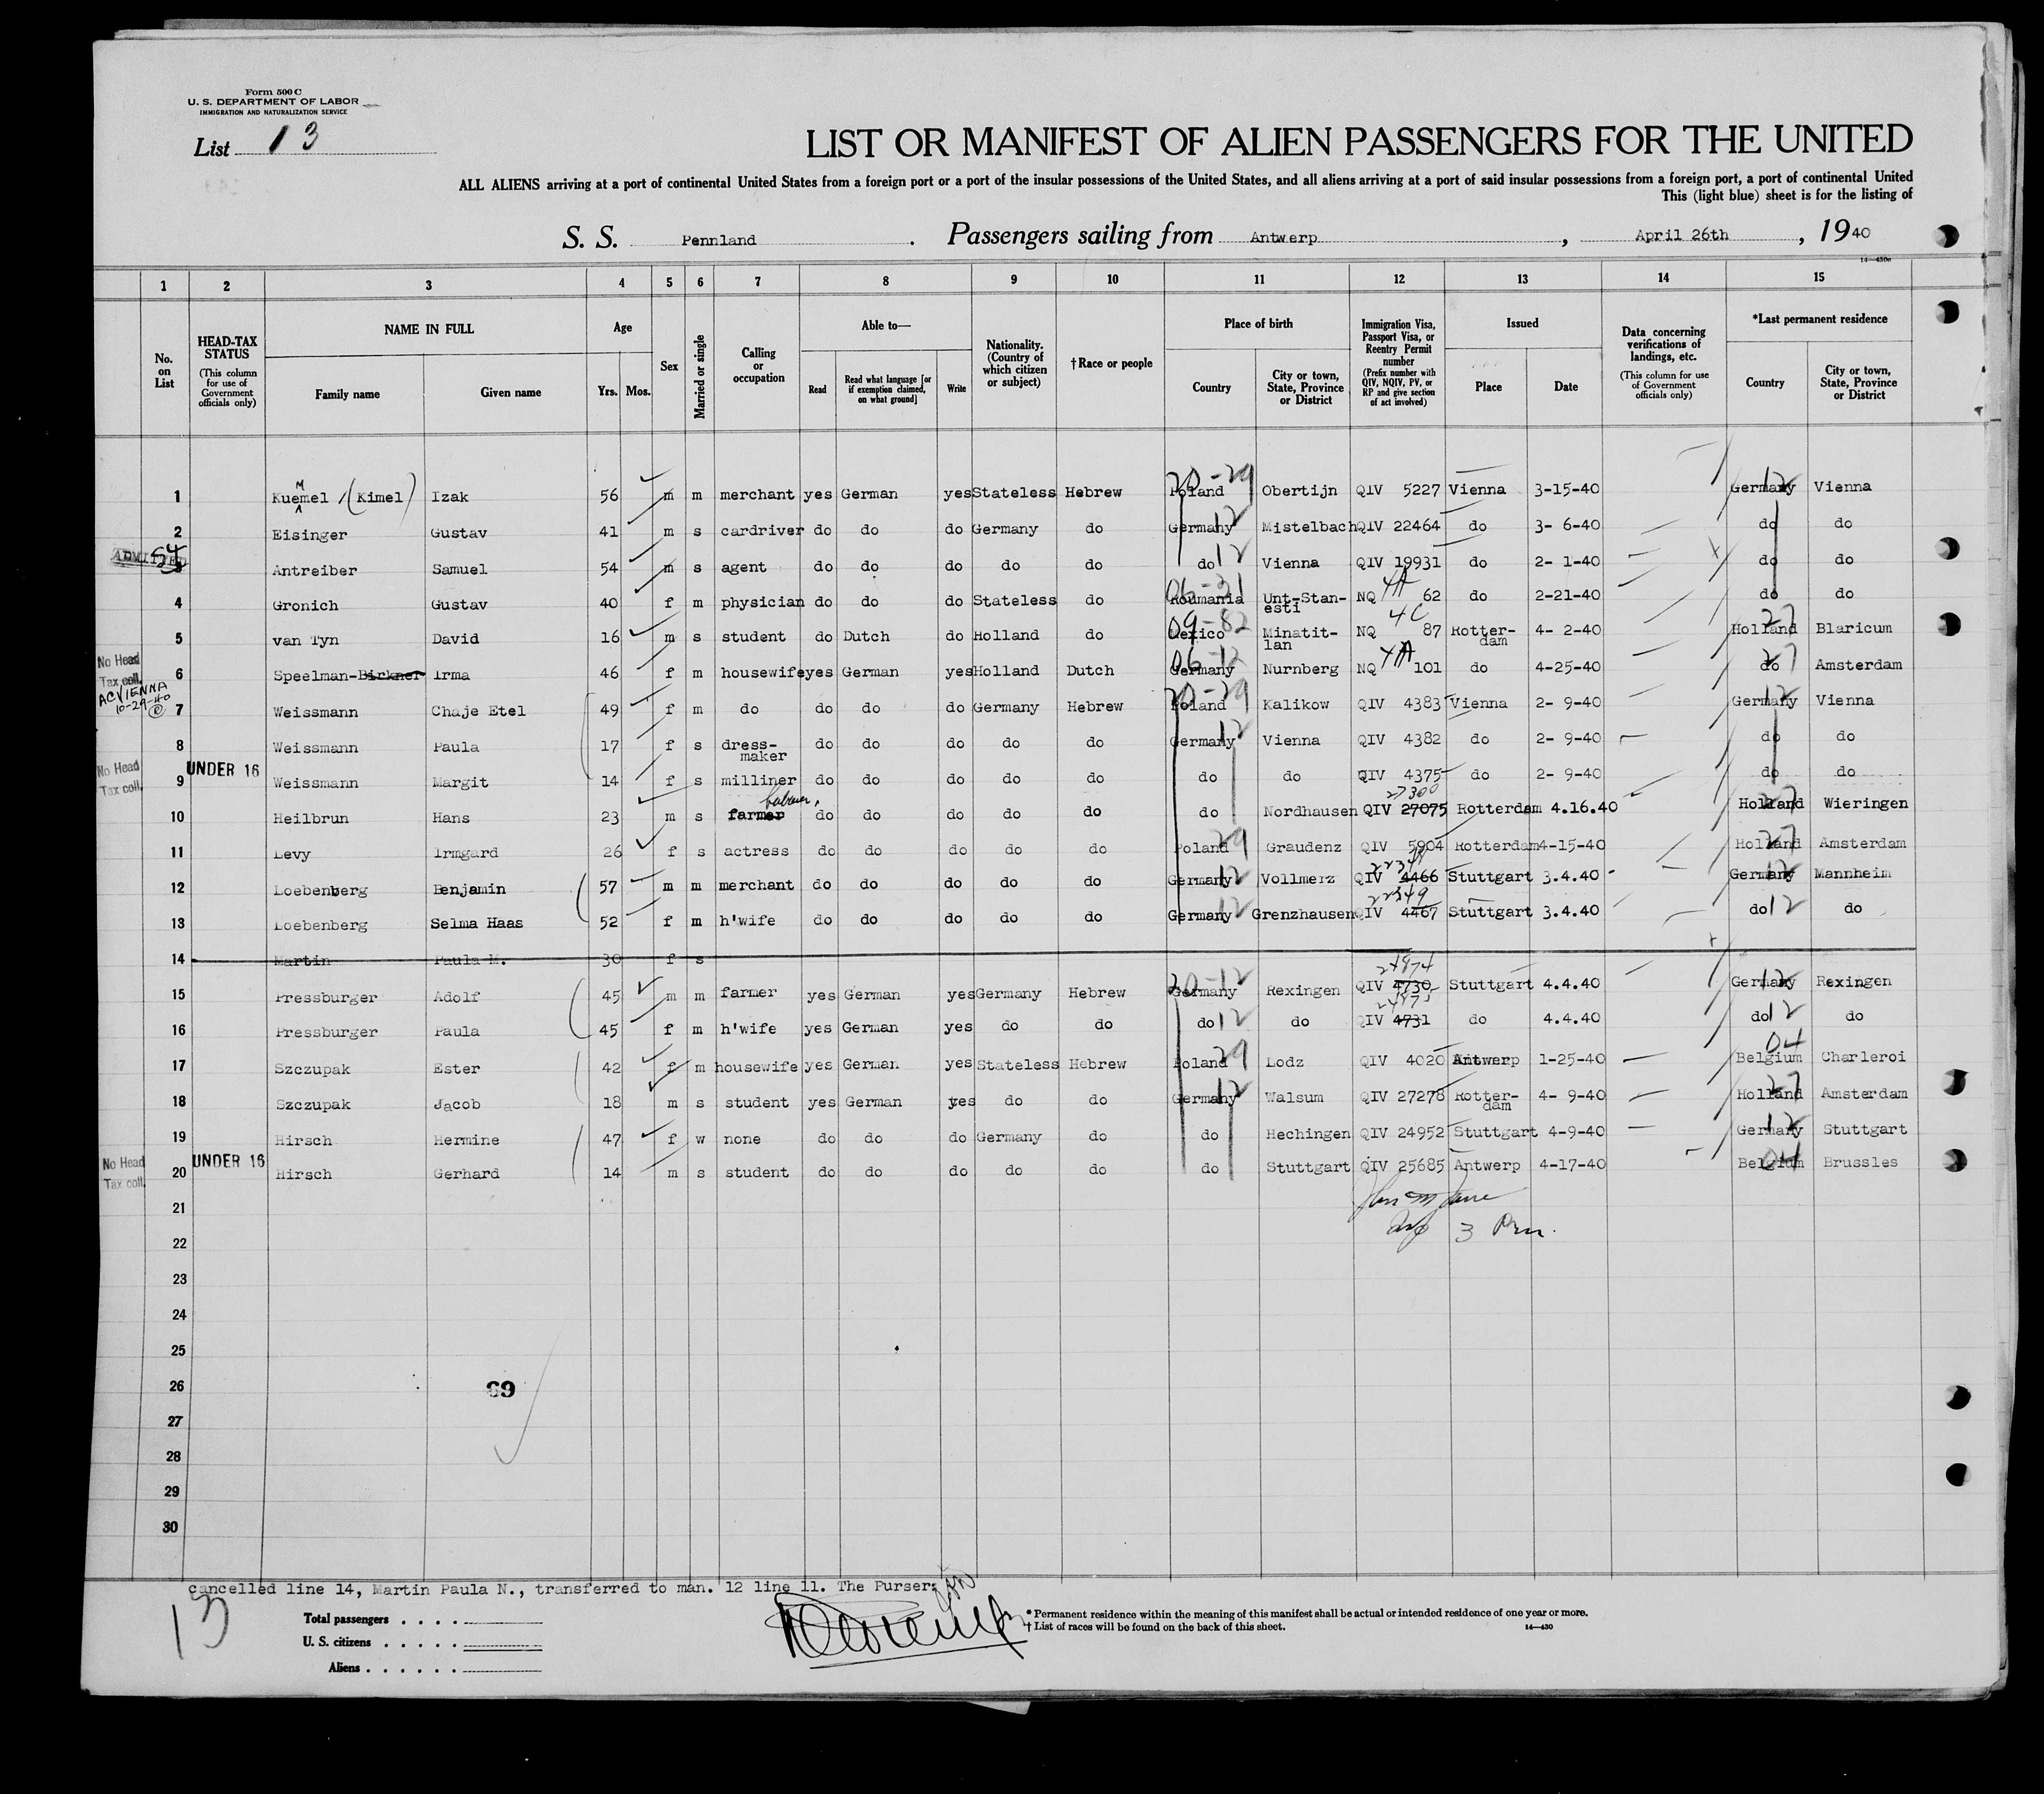 Form 500 C
U. S. DEPARTMENT OF LABOR
IMMIGRATION AND NATURALIZATION SERVICE
List 13
LIST OR MANIFEST OF ALIEN PASSENGERS FOR THE UNITED
ALL ALIENS arriving at a port of continental United States from a foreign port or a port of the insular possessions of the United States, and all aliens arriving at a port of said insular possessions from a foreign port, a port of continental United
This (light blue) sheet is for the listing of
S. S. Pennland. Passengers sailing from Antwerp, April 26th, 1940
14—430c
1 2 3 4 5 6 7 8 9 10 11 12 13 14 15
No. on List
HEAD-TAX STATUS (This column for use of Government officials only)
NAME IN FULL Family name Given name
Age Yrs. Mos.
Sex
Married or single
Calling or occupation
Able to— Read Read what language [or if exemption claimed, on what ground] Write
Nationality. (Country of which citizen or subject)
†Race or people
Place of birth Country City or town, State, Province or District
Immigration Visa, Passport Visa, or Reentry Permit number (Prefix number with QIV, NQIV, PV, or RP and give section of act involved)
Issued Place Date
Data concerning verifications of landings, etc. (This column for use of Government officials only)
*Last permanent residence Country City or town, State, Province or District
1 Kuemel M (Kimel) Izak 56 m m merchant yes German yes Stateless Hebrew Poland 20-29 Obertijn QIV 5227 Vienna 3-15-40 Germany 12 Vienna
2 Eisinger Gustav 41 m s cardriver do do do Germany do Germany 12 Mistelbach QIV 22464 do 3- 6-40 do do
ADMITTED 54
3 Antreiber Samuel 54 m s agent do do do do do do 12 Vienna QIV 19931 do 2- 1-40 do do
4 Gronich Gustav 40 f m physician do do do Stateless do Roumania 06-31 Unt-Stanesti NQ 4A 62 do 2-21-40 do do
5 van Tyn David 16 m s student do Dutch do Holland do Mexico 09-82 Minatit-lan NQ 4C 87 Rotter-dam 4- 2-40 Holland 27 Blaricum
No Head Tax coll.
6 Speelman-Birkner Irma 46 f m housewife yes German yes Holland Dutch Germany 06-12 Nurnberg NQ 4A 101 do 4-25-40 do 27 Amsterdam
AC VIENNA 10-29-40
7 Weissmann Chaje Etel 49 f m do do do do Germany Hebrew Poland 20-29 Kalikow QIV 4383 Vienna 2- 9-40 Germany 12 Vienna
8 Weissmann Paula 17 f s dress-maker do do do do do Germany 12 Vienna QIV 4382 do 2- 9-40 do do
No Head Tax coll. UNDER 16
9 Weissmann Margit 14 f s milliner do do do do do do do QIV 4375 do 2- 9-40 do do
10 Heilbrun Hans 23 m s farmer do do do do do do Nordhausen QIV 27075 27300 Rotterdam 4.16.40 Holland 27 Wieringen
11 Levy Irmgard 26 f s actress do do do do do Poland 29 Graudenz QIV 5904 Rotterdam 4-15-40 Holland 27 Amsterdam
12 Loebenberg Benjamin 57 m m merchant do do do do do Germany 12 Vollmerz QIV 4466 22348 Stuttgart 3.4.40 Germany 12 Mannheim
13 Loebenberg Selma Haas 52 f m h'wife do do do do do Germany 12 Grenzhausen QIV 4467 22349 Stuttgart 3.4.40 do 12 do
14 Martin Paula M. 30 f s
15 Pressburger Adolf 45 m m farmer yes German yes Germany Hebrew Germany 20-12 Rexingen QIV 4730 24974 Stuttgart 4.4.40 Germany 12 Rexingen
16 Pressburger Paula 45 f m h'wife yes German yes do do do 12 do QIV 4731 24975 do 4.4.40 do 12 do
17 Szczupak Ester 42 f m housewife yes German yes Stateless Hebrew Poland 29 Lodz QIV 4020 Antwerp 1-25-40 Belgium 04 Charleroi
18 Szczupak Jacob 18 m s student yes German yes do do Germany 12 Walsum QIV 27278 Rotter-dam 4- 9-40 Holland 27 Amsterdam
19 Hirsch Hermine 47 f w none do do do Germany do do Hechingen QIV 24952 Stuttgart 4-9-40 Germany 12 Stuttgart
No Head Tax coll. UNDER 16
20 Hirsch Gerhard 14 m s student do do do do do do Stuttgart QIV 25685 Antwerp 4-17-40 Belgium 04 Brussles
21
22 3 Prm.
23
24
25
26 69
27
28
29
30
cancelled line 14, Martin Paula N., transferred to man. 12 line 11. The Purser:
13
Total passengers . . . .
U. S. citizens . . . . .
Aliens . . . . . .
* Permanent residence within the meaning of this manifest shall be actual or intended residence of one year or more.
† List of races will be found on the back of this sheet.
14—430